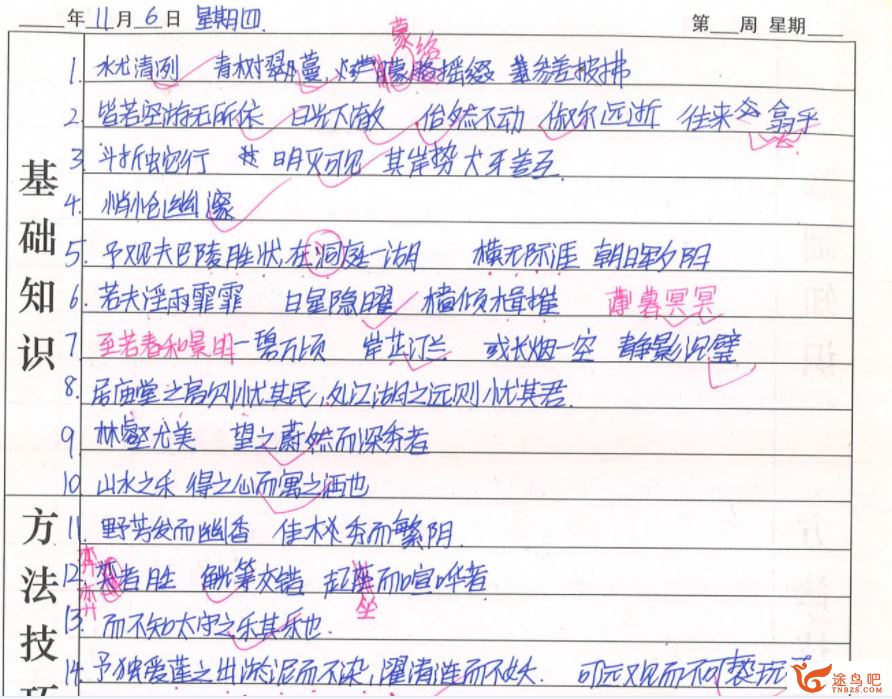 ____年11月6日 星期四 第___周 星期____
蒙络
1. 水尤清冽 青树翠蔓, 摇缀 参差披拂
2. 皆若空游无所依 日光下澈 佁然不动 俶尔远逝 往来翕乎
3. 斗折蛇行 明灭可见 其岸势犬牙差互.
4. 悄怆幽邃
5. 予观夫巴陵胜状,在洞庭一湖 横无际涯 朝晖夕阴
6. 若夫淫雨霏霏 日星隐曜 樯倾楫摧 薄暮冥冥
7 至若春和景明 一碧万顷 岸芷汀兰 或长烟一空 静影沉璧
8. 居庙堂之高则忧其民,处江湖之远则忧其君.
9. 林壑尤美 望之蔚然而深秀者
10 山水之乐 得之心而寓之酒也
11. 野芳发而幽香 佳木秀而繁阴.
弈
12. 者胜 觥筹交错 起座而喧哗者
弈 坐
13. 而不知太守之乐其乐也.
14. 予独爱莲之出淤泥而不染,濯清涟而不妖. 可远观而不可亵玩
基础知识
方法技巧
途鸟吧
TNBZS.COM